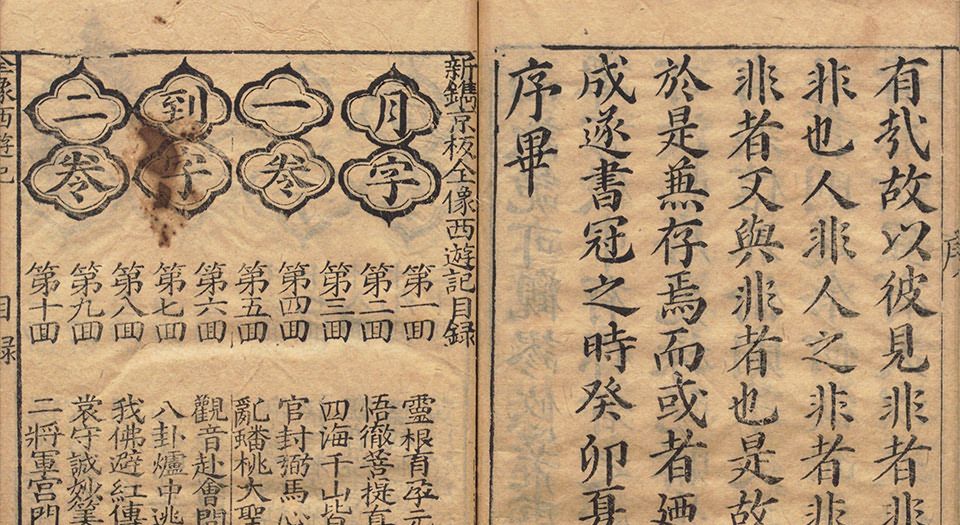 有哉故以彼見非者非
非也人非人之非者非
非者又與非者也是故
於是兼存焉而或者廼
成遂書冠之時癸卯夏
序畢
新鐫京板全像西遊記目錄
月字
一卷
到字
二卷
第一回 靈根育孕元
第二回 悟徹菩提真
第三回 四海千山皆
第四回 官封弼馬心
第五回 亂蟠桃大聖
第六回 觀音赴會問
第七回 八卦爐中逃
第八回 我佛造經傳
第九回 袁守誠妙筭
第十回 二將軍宮門
全像西遊記 目錄